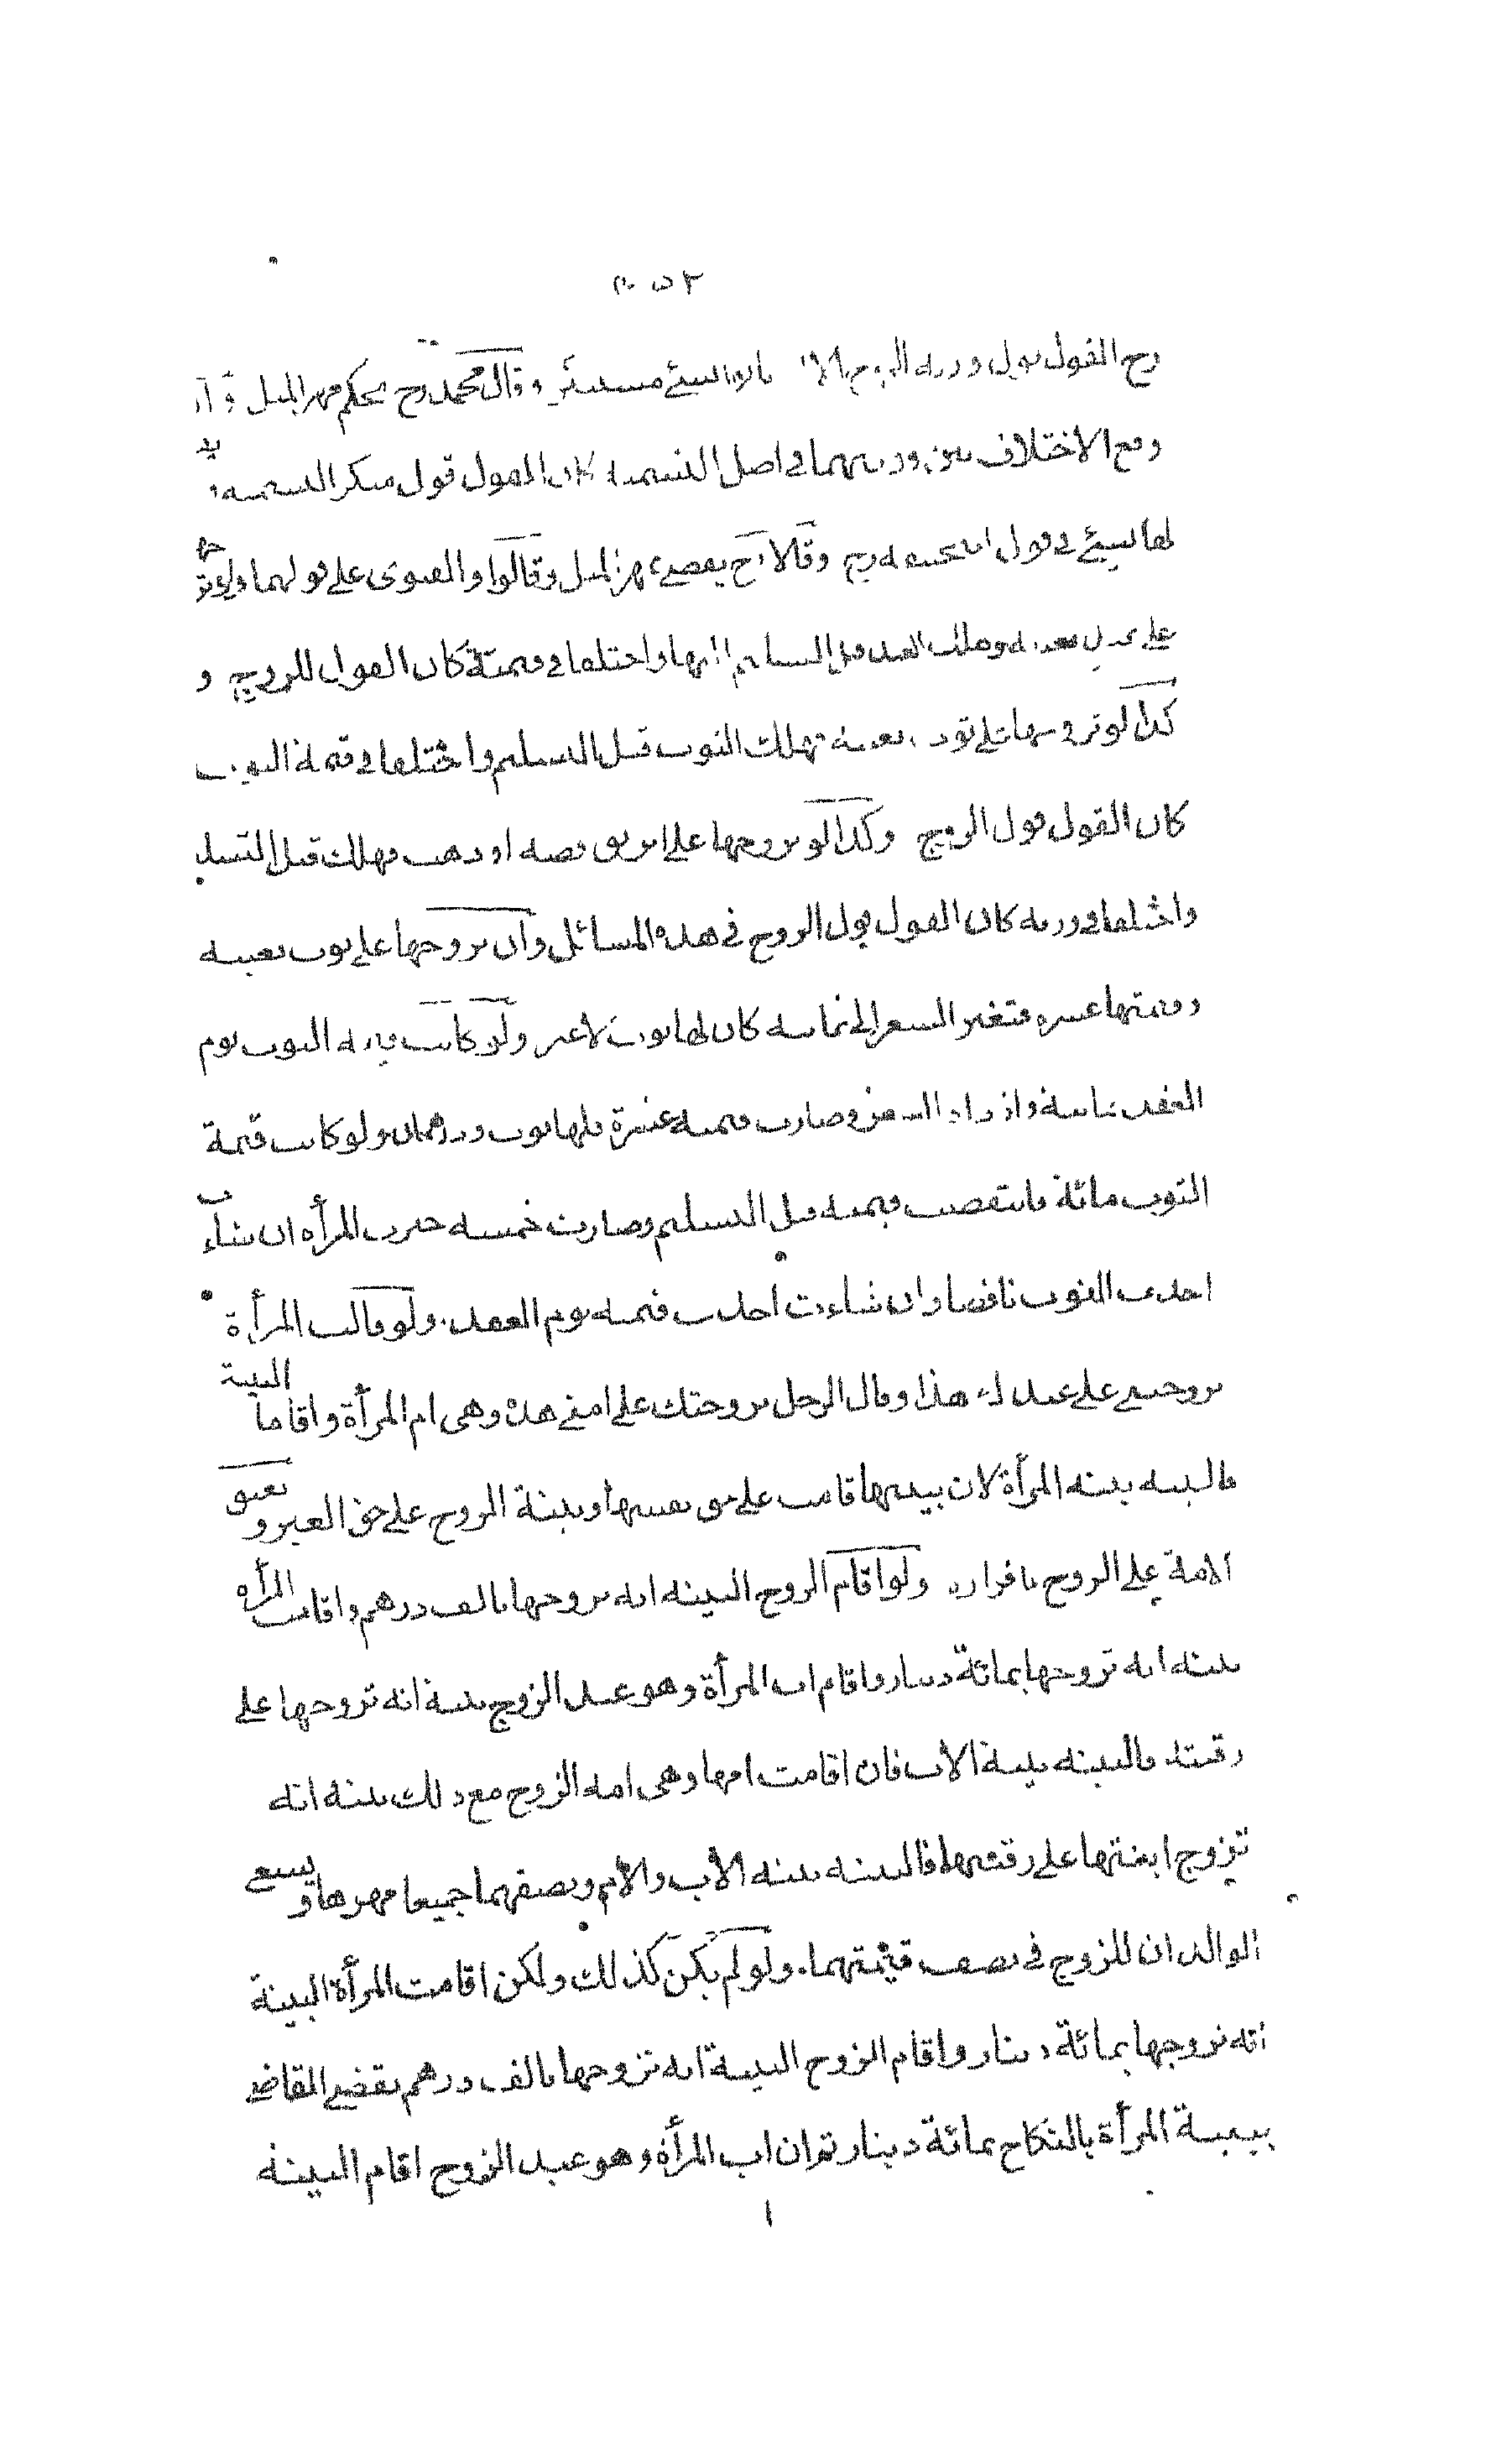 رح القول قول ورثة الزوج الا بشئ مستنكر وقال محمد رح يحكم مهر المثل
ومع الاختلاف بين ورثتهما في اصل التسمية كان القول قول منكر التسمية
لها بشئ في قول ابي حنيفة رح وقالا رح يقضى بمهر المثل وقالوا والفتوى على قولهما ولو تزوجها
على عبد بعينه وهلك العبد قبل التسليم اليها واختلفا في قيمته كان القول للزوج و
كذا لو تزوجها على ثوب بعينه فهلك الثوب قبل التسليم واختلفا في قيمة الثوب
كان القول قول الزوج وكذا لو تزوجها على ابريق فضة او ذهب فهلك قبل التسليم
واختلفا في وزنه كان القول قول الزوج في هذه المسائل وان تزوجها على ثوب بعينه
وقيمتها عشرة فتغير السعر الى ثمانية كان لها ثوب لا غير ولو كانت قيمة الثوب يوم
العقد ثمانية وازداد السعر وصارت قيمته عشرة فلها ثوب ودرهمان ولو كانت قيمة
الثوب مائة فانتقصت قيمته قبل التسليم وصارت خمسه خيرت المرأة ان شاءت
اخذت الثوب ناقصا وان شاءت اخذت قيمته يوم العقد. ولو قالت المرأة
تزوجتني على عبدك هذا وقال الرجل تزوجتك على امتي هذه وهى ام المرأة واقاما البينة
فالبينه بينه المرأة لان بينتها قامت على حق نفسها وبينة الزوج على حق الغير و تعتق
الامة على الزوج باقراره ولو اقام الزوج البينه انه تزوجها بالف درهم واقامت المرأه
بينه انه تزوجها بمائة دينار واقام اب المرأة وهو عبد الزوج بينة انه تزوجها على
رقبته فالبينه بينة الاب فان اقامت امها وهى امه الزوج مع ذلك بينه انه
تزوج ابنتها على رقبتها فالبينه بينه الأب والأم ونصفهما جميعا مهرها و يسعى
الوالدان للزوج في نصف قيمتهما. ولو لم يكن كذلك ولكن اقامت المرأة البينة
انه تزوجها بمائة دينار واقام الزوج البينة انه تزوجها بالف درهم فقضى القاضى
ببينة المرأة بالنكاح بمائة دينار ثم ان اب المرأة وهو عبد الزوج اقام البينة